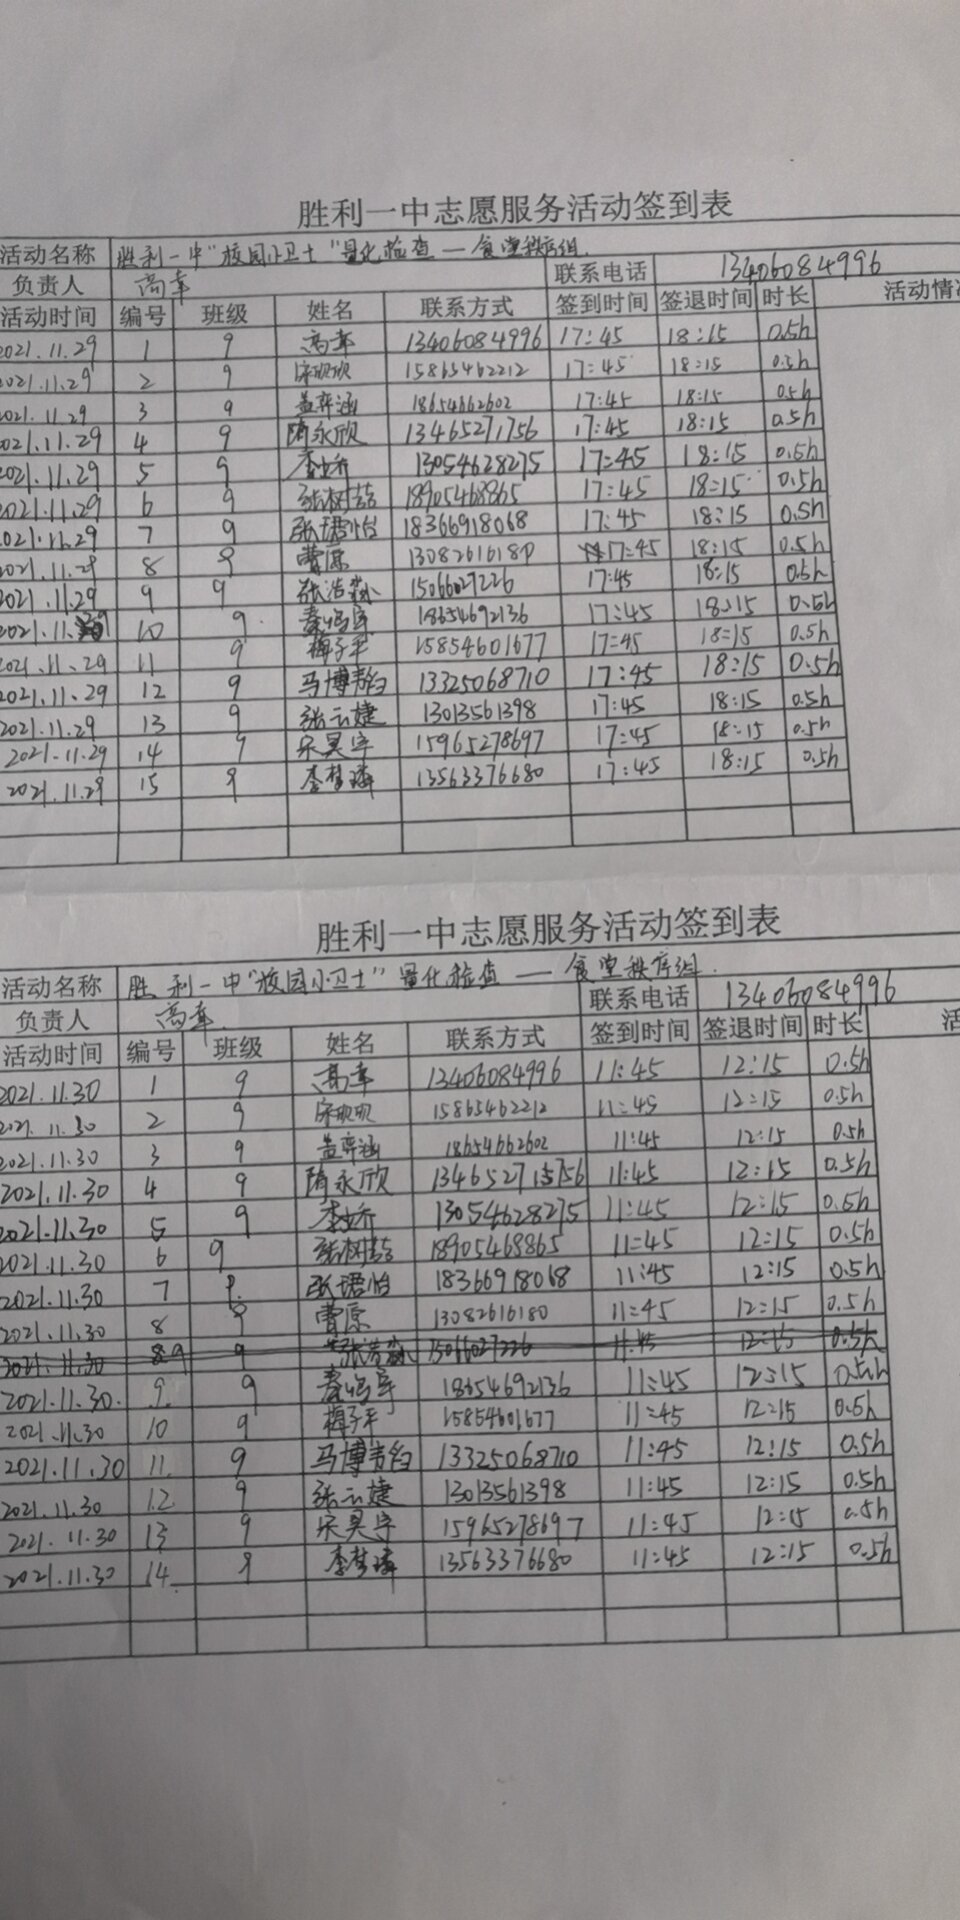 胜利一中志愿服务活动签到表
活动名称 胜利一中"校园小卫士"量化检查——食堂秩序组
负责人 高幸 联系电话 13406084996
活动时间 编号 班级 姓名 联系方式 签到时间 签退时间 时长 活动情
2021.11.29 1 9 高幸 13406084996 17:45 18:15 0.5h
2021.11.29 2 9 15865462212 17:45 18:15 0.5h
2021.11.29 3 9 盖弈涵 18654662602 17:45 18:15 0.5h
2021.11.29 4 9 隋永欣 13465271756 17:45 18:15 0.5h
2021.11.29 5 9 13054628275 17:45 18:15 0.5h
2021.11.29 6 9 18905468865 17:45 18:15 0.5h
2021.11.29 7 9 张珺怡 18366918068 17:45 18:15 0.5h
2021.11.29 8 9 曹原 17:45 18:15 0.5h
2021.11.29 9 9 张浩淼 15066027226 17:45 18:15 0.5h
2021.11. 10 9 18654692136 17:45 18:15 0.5h
2021.11.29 11 9 梅子平 15854601677 17:45 18:15 0.5h
2021.11.29 12 9 马博韬 13325068710 17:45 18:15 0.5h
2021.11.29 13 9 张云婕 13013561398 17:45 18:15 0.5h
2021.11.29 14 9 宋昊宇 15965278697 17:45 18:15 0.5h
2021.11.29 15 9 李梦璘 13563376680 17:45 18:15 0.5h
胜利一中志愿服务活动签到表
活动名称 胜利一中"校园小卫士"量化检查——食堂秩序组.
负责人 高幸. 联系电话 13406084996
活动时间 编号 班级 姓名 联系方式 签到时间 签退时间 时长 活
2021.11.30 1 9 高幸 13406084996 11:45 12:15 0.5h
2021.11.30 2 9 15865462212 11:45 12:15 0.5h
2021.11.30 3 9 盖弈涵 18654662602 11:45 12:15 0.5h
2021.11.30 4 9 隋永欣 11:45 12:15 0.5h
2021.11.30 5 9 13054628275 11:45 12:15 0.5h
2021.11.30 6 9 18905468865 11:45 12:15 0.5h
2021.11.30 7 9 张珺怡 18366918068 11:45 12:15 0.5h
2021.11.30 8 9 曹原 13082616180 11:45 12:15 0.5h
2021.11.30 9 9 张浩淼 15066027226 11:45 12:15 0.5h
2021.11.30. 9 9 18654692136 11:45 12:15 0.5h
2021.11.30 10 9 梅子平 15854601677 11:45 12:15 0.5h
2021.11.30 11 9 马博韬 13325068710 11:45 12:15 0.5h
2021.11.30 12 9 张云婕 13013561398 11:45 12:15 0.5h
2021.11.30 13 9 宋昊宇 15965278697 11:45 12:15 0.5h
2021.11.30 14 9 李梦璘 13563376680 11:45 12:15 0.5h